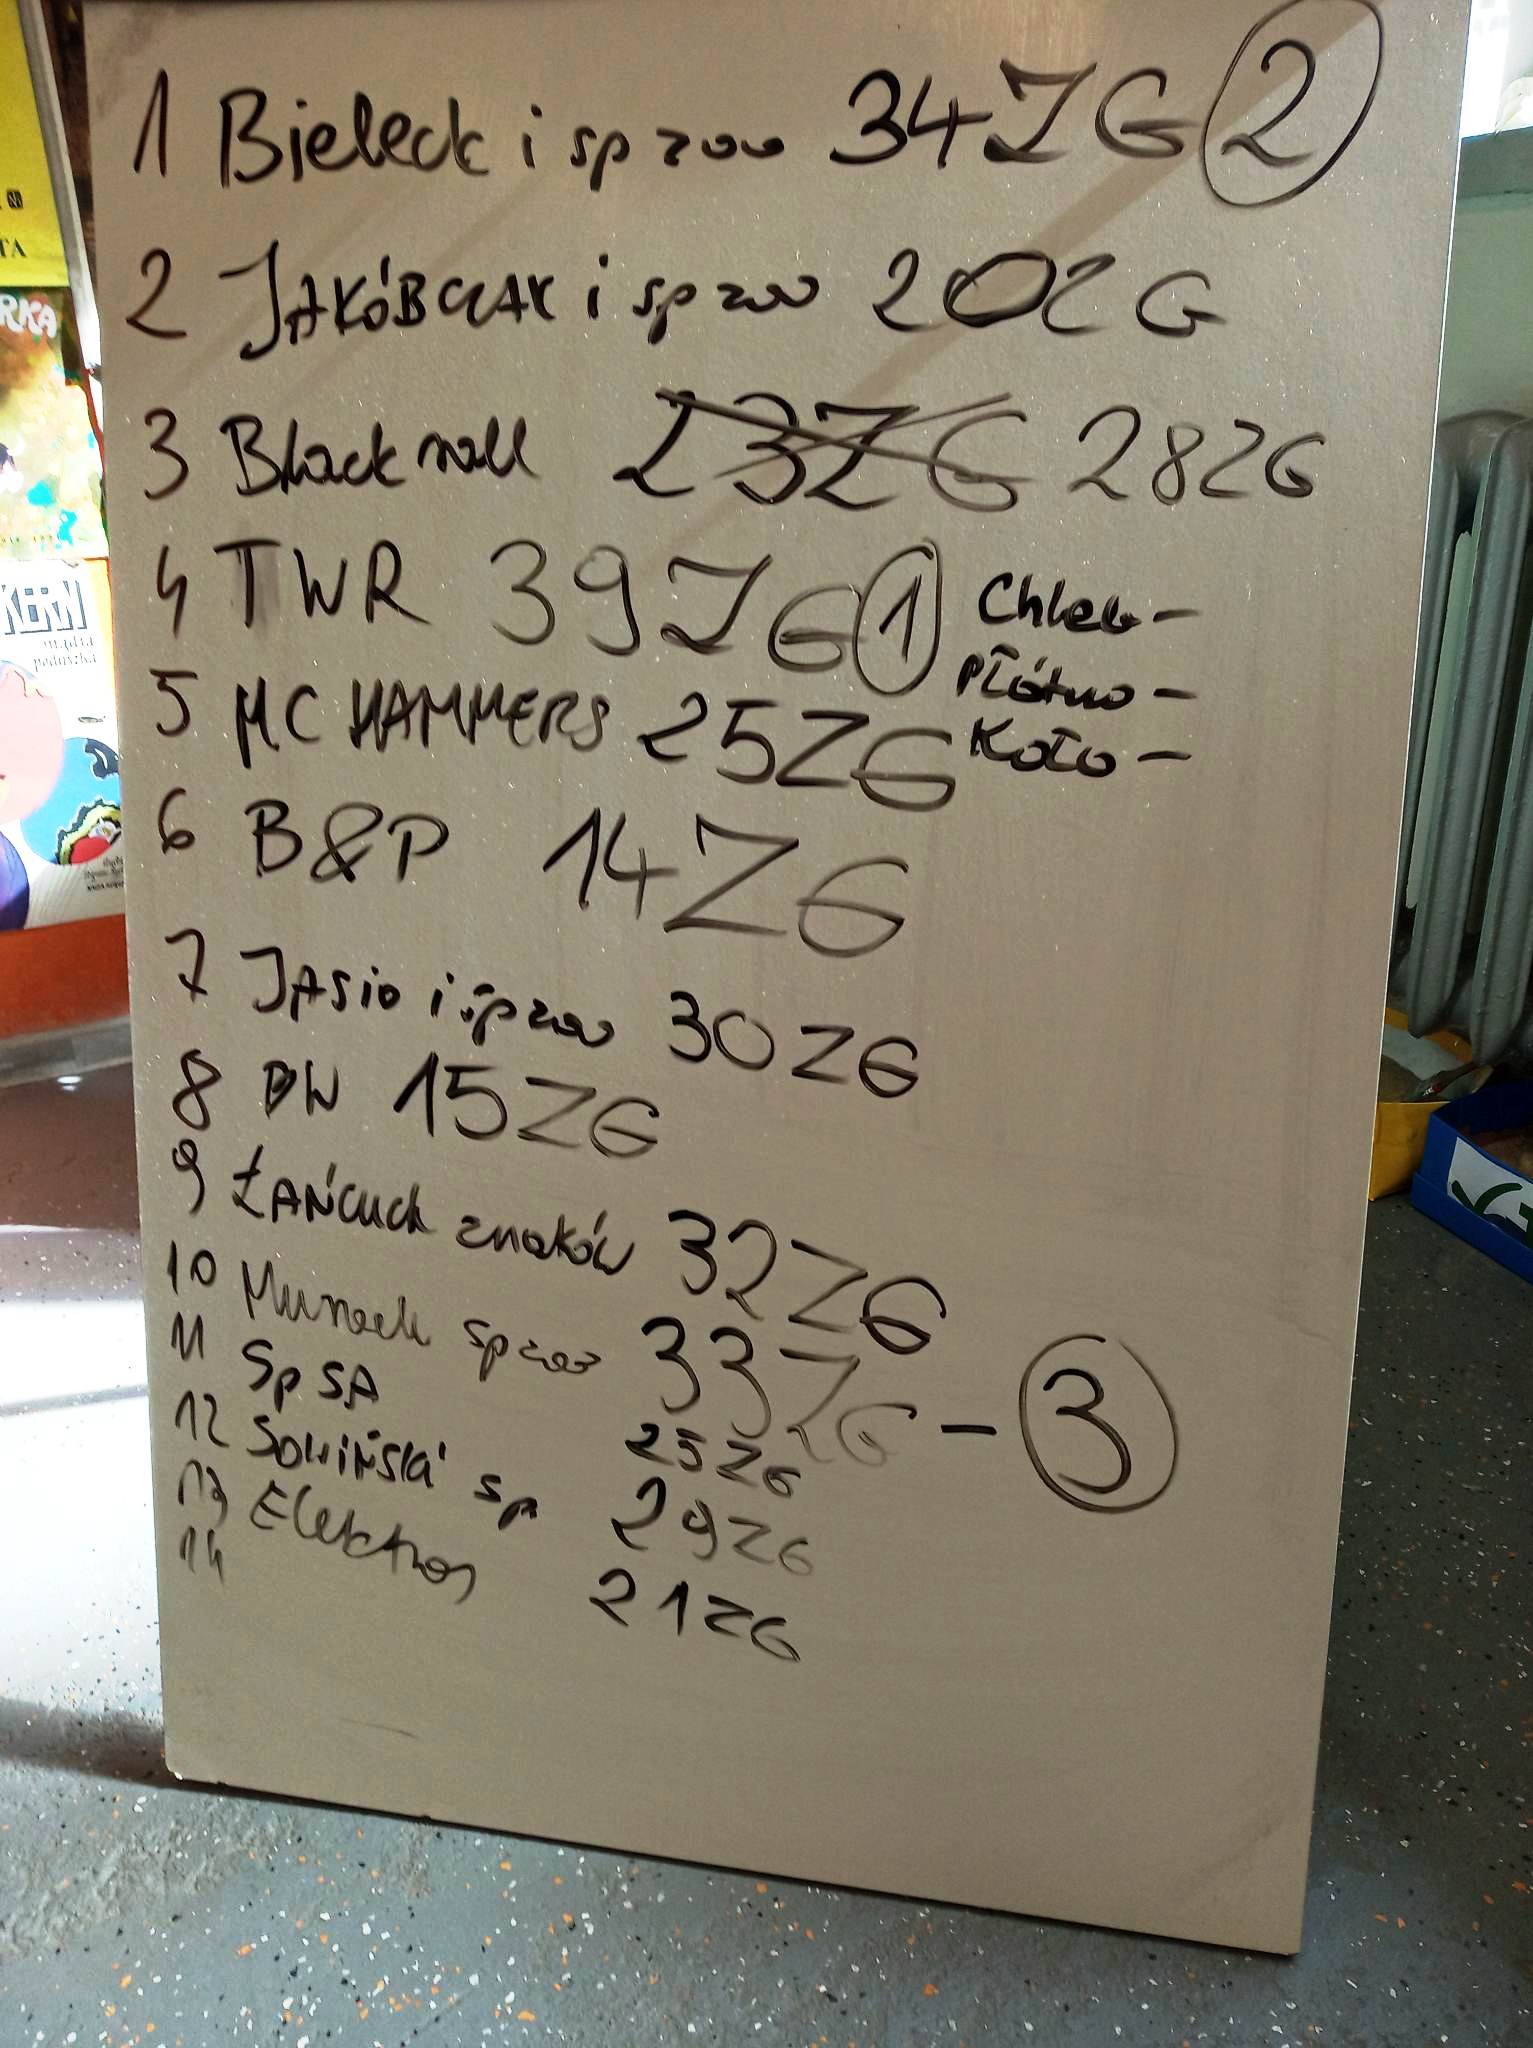 1 Bieleck i sp zoo 34ZG 2
2 JAKÓBCZAK i sp zoo 20ZG
3 Black roll 23ZG 28ZG
4 TWR 39ZG 1
Chleb -
Płótno -
Koło -
5 MC HAMMERS 25ZG
6 B&P 14ZG
7 JASIO i sp zoo 30ZG
8 BW 15ZG
9 ŁAŃCUCH znaków 32ZG
10 sp zoo 33ZG - 3
11 Sp SA 25ZG
12 SOWIŃSKI sp 29ZG
13 21ZG
14
RKA
TA
KERN
mądra
poduszka